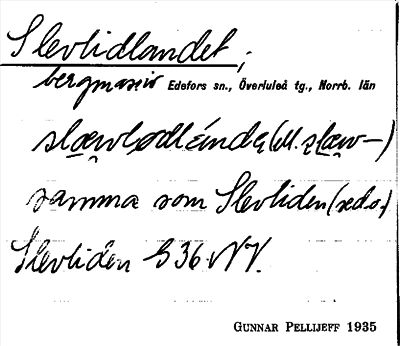 Slevlidlandet,
bergmassiv Edefors sn., Överluleå tg., Norrb. län
samma som Slevliden (red.o.)
Slevliden S 36 NV.
GUNNAR PELLIJEFF 1935